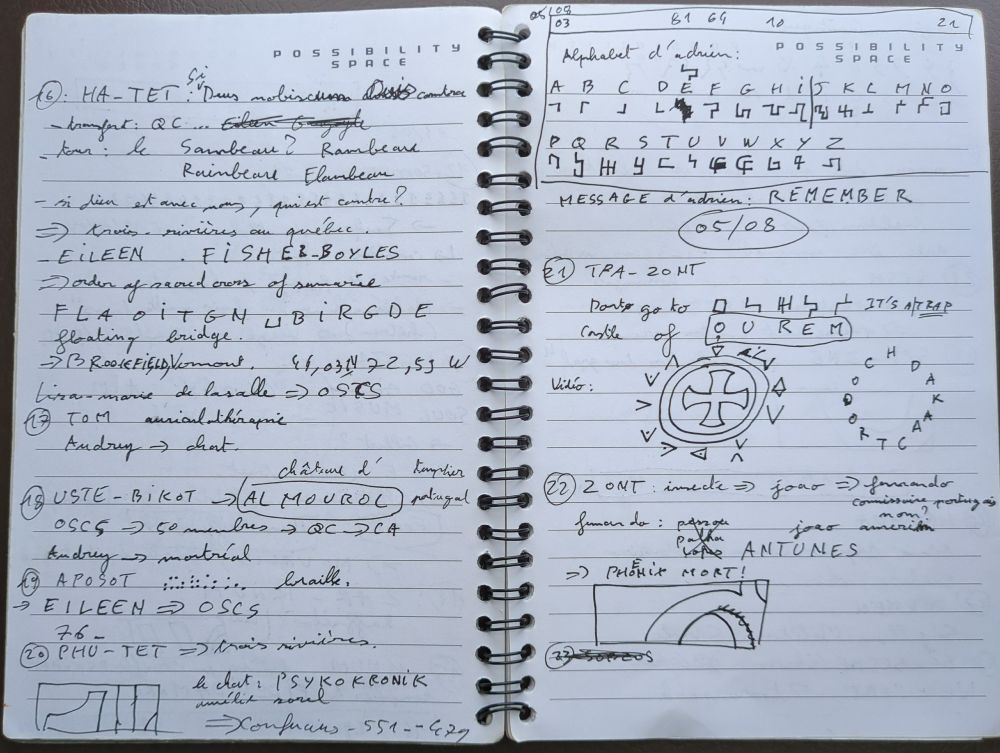 POSSIBILITY
SPACE
16: HA-TET : si Deus nobiscum contra
- transfert: QC ...
- tour: le Sambeau? Rambeau
Rainbeau Flambeau
- si dieu est avec nous, qui est contre?
=> trois-rivières au québec.
- EILEEN . FISHER-BOYLES
=> order of sacred cross of samarie
FLAOITGN BIRGDE
floating bridge.
-> BROOKFIELD, Vermont.
Lisa-marie de lasalle => OSCS
17 TOM auriculothérapie
Audrey -> chat.
château d' templier
18 USTE-BIKOT -> ALMOUROL portugal
OSCS -> 50 membres -> QC -> CA
Audrey -> montréal
19 APOSOT braille.
-> EILEEN => OSCS
76-
20 PHU-TET => trois rivières.
le chat: PSYKOKRONIK
amélie sorel
=> Confucius -551 - -479
05/08
03 B1 64 10 21
POSSIBILITY
SPACE
Alphabet d'adrien:
A B C D E F G H i J K L M N O
P Q R S T U V W X Y Z
MESSAGE d'adrien: REMEMBER
05/08
21 TPA-ZONT
Don't go to IT'S A TRAP
Castle of OUREM
Vidéo:
C H D A K A A C T R O D O
22 ZONT: insecte => joao => fernando
commissaire portugais
nom?
fernando: pessoa joao amerim
palha
lopes ANTUNES
=> PHOENIX MORT!
23